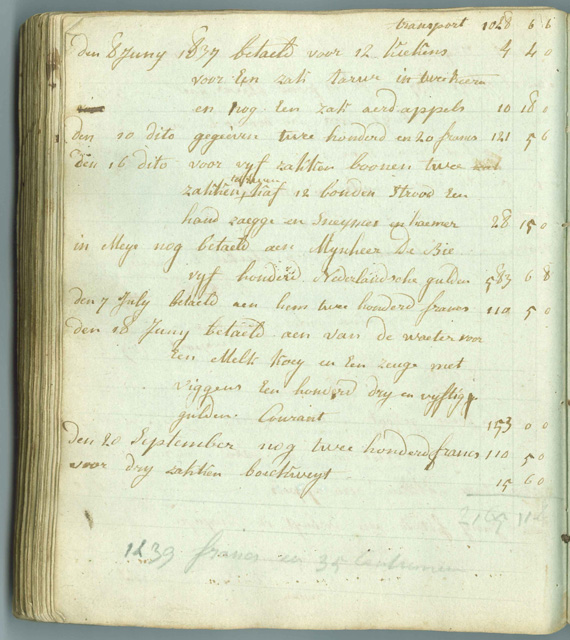 transport 1028 6 6
den 8 Juny 1837 betaeld voor 12 kiekens 4 4 0
voor Een zak tarwe in twee keeren
en nog Een zak aerdappels 10 18 0
den 10 dito gegeven twee honderd en 20 francs 121 5 6
den 16 dito voor vyf zakken boonen twee
zakken haf 12 bonden Strood Een
hand zaegge en Sneymes en haemer 28 15 0
in Meye nog betaeld aen Mynheer De Bie
vyf honderd Nederlandsche gulden 583 6 8
den 7 July betaeld aen hem twee honderd francs 110 5 0
den 18 Juny betaeld aen van de waeter voor
Een Melk koey en Een zeuge met
viggens Een honderd dry en vyftig
gulden Courant 153 0 0
den 20 September nog twee honderd francs 110 5 0
voor dry zakken boekweyt 15 6 0
2165 11
1239 francs en 35 Centimen